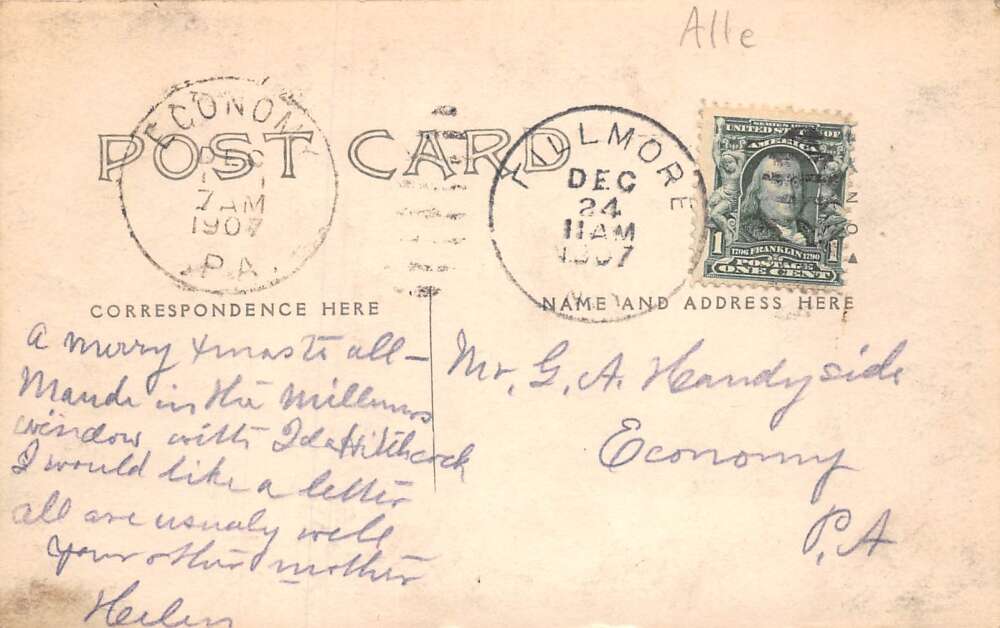 Alle
POST CARD
ECONOMY
DEC
7 AM
1907
PA.
FILLMORE
DEC
24
11 AM
1907
SERIES 1902
UNITED STATES OF
AMERICA
1706 FRANKLIN 1790
1 POSTAGE 1
ONE CENT
CORRESPONDENCE HERE
NAME AND ADDRESS HERE
A merry Xmas to all—
Maude in the Millenos
window with Ida Hitchcock
I would like a letter
all are usualy well
your other mother
Helen
Mr. G. A. Handyside
Economy
P.A